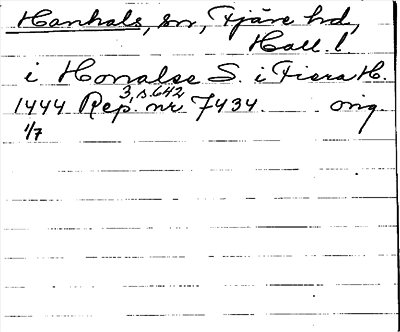 Hanhals, sn, Fjäre hd,
Hall. l
i Honalse S. i Fiera H.
3, s. 642
1444 Rep. nr 7434. orig.
1/7